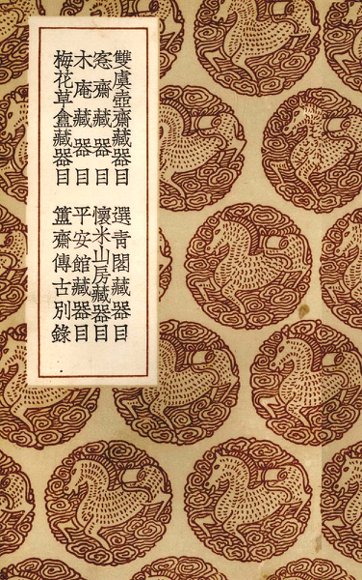 雙虞壺齋藏器目 選青閣藏器目
愙齋藏器目 懷米山房藏器目
木庵藏器目 平安館藏器目
梅花草盦藏器目 簠齋傳古別錄